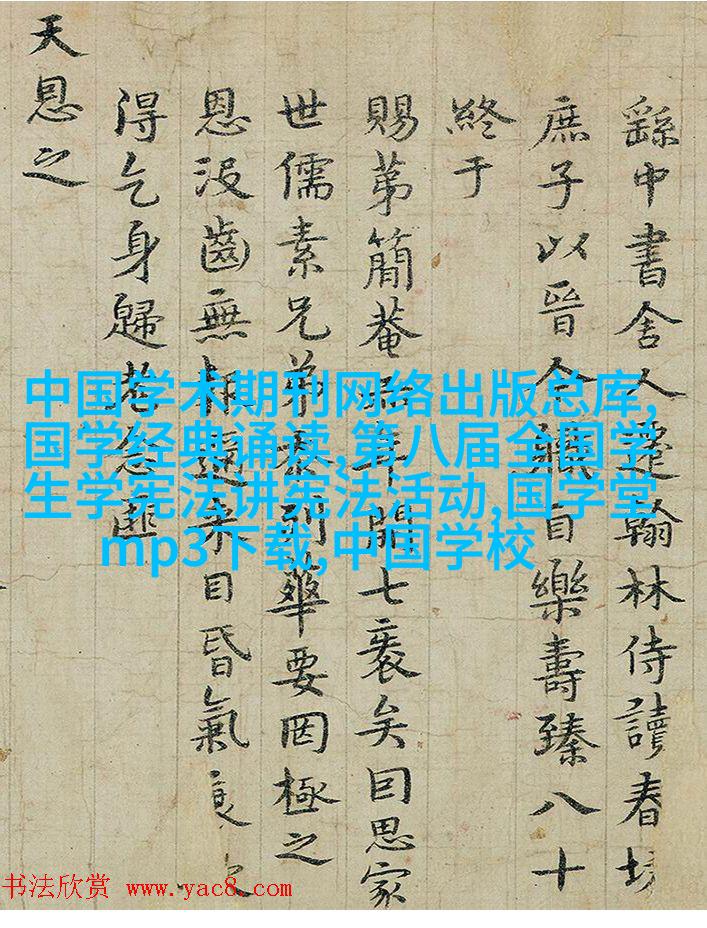 繇中書舍人遷翰林侍讀春坊
庶子以晉今職自樂壽臻八十
終于
賜第簡菴年開七袠矣囙思家
世儒素兄弟忝列華要罔極之
恩沒齒無來目昏氣衰
得乞身歸老念匪
天恩之
中国学术期刊网络出版总库,
国学经典诵读,第八届全国学
生学宪法讲宪法活动,国学堂
mp3下载,中国学校
书法欣赏 www.yac8.com